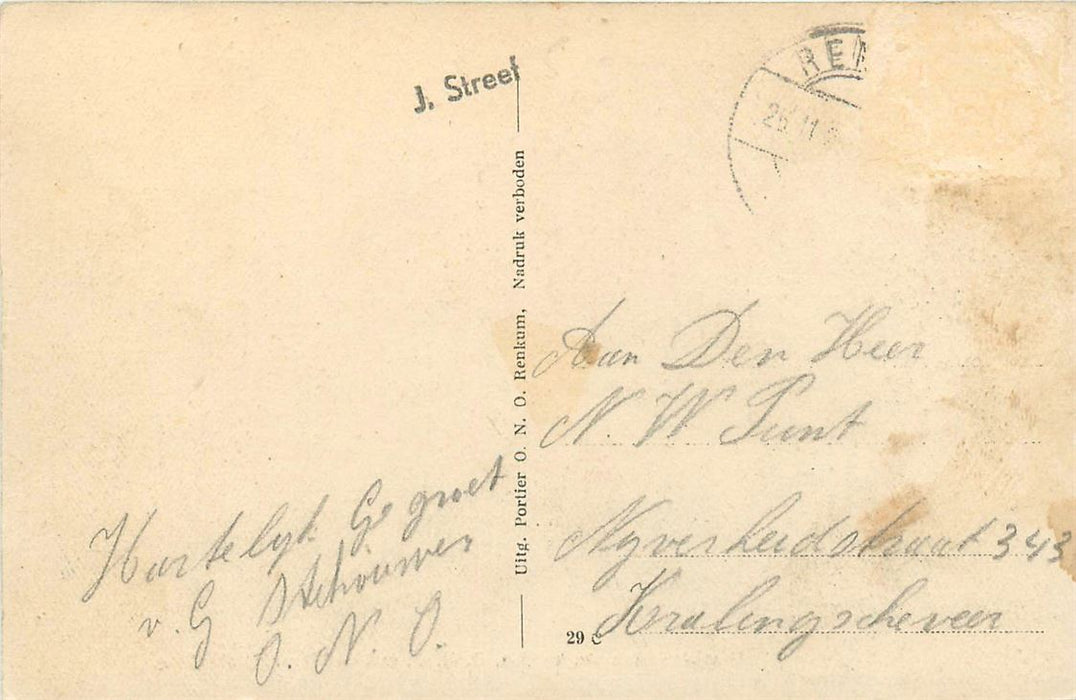 J. Streef
REN
26.11
Uitg. Portier O. N. O. Renkum, Nadruk verboden
Aan Den Heer
N. W Punt
Nyverheidstraat 343
Kralingscheveer
Hartelyk Gegroet
v. G Schouwer
O. N. O.
29 C